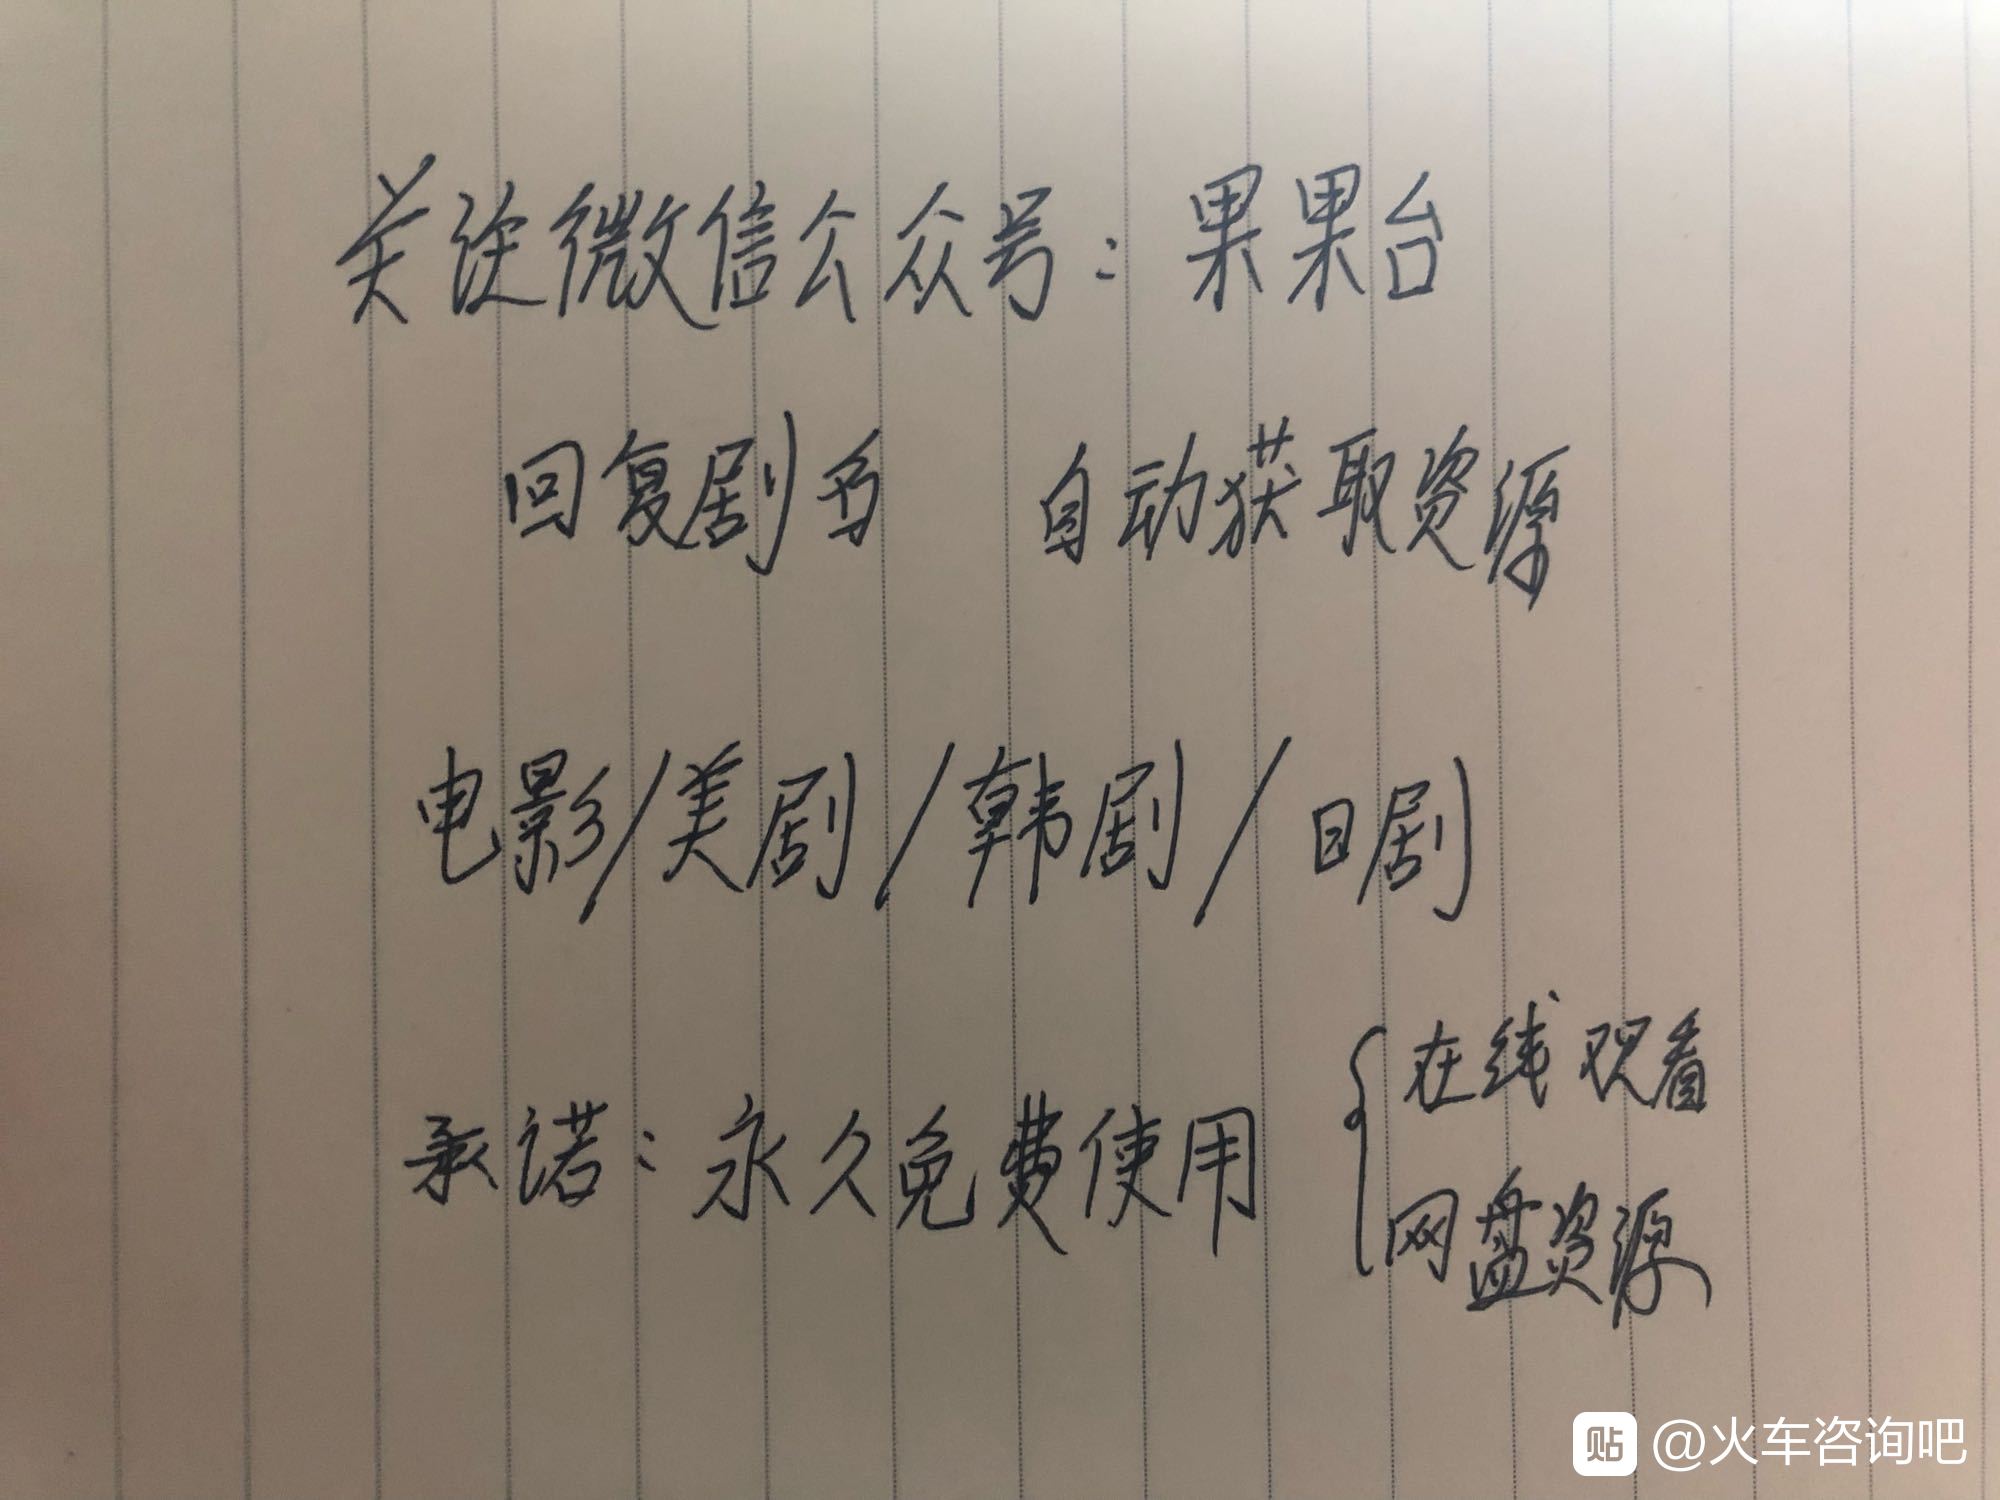 关注微信公众号：果果台
回复剧名 自动获取资源
电影/美剧/韩剧/日剧
承诺：永久免费使用
在线观看
网盘资源
贴 @火车咨询吧